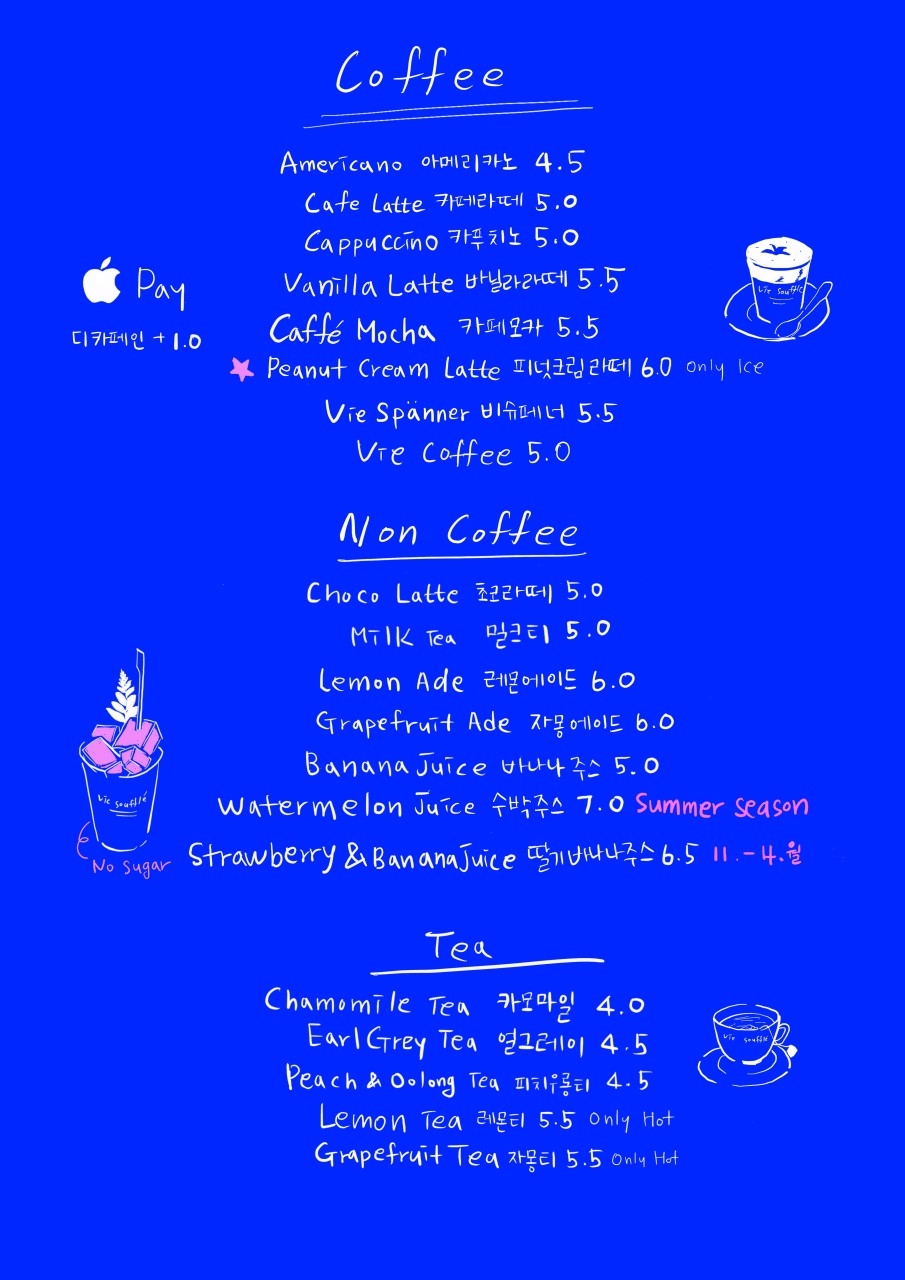 Coffee
Americano 아메리카노 4.5
Cafe Latte 카페라떼 5.0
Cappuccino 카푸치노 5.0
Vanilla Latte 바닐라라떼 5.5
Caffé Mocha 카페모카 5.5
Peanut Cream Latte 피넛크림라떼 6.0 Only Ice
Vie Spänner 비슈페너 5.5
Vie Coffee 5.0
Pay
디카페인 + 1.0
Vie soufflé
Non Coffee
Choco Latte 초코라떼 5.0
Milk Tea 밀크티 5.0
Lemon Ade 레몬에이드 6.0
Grapefruit Ade 자몽에이드 6.0
Banana Juice 바나나주스 5.0
Watermelon Juice 수박주스 7.0 Summer season
Strawberry & Banana Juice 딸기바나나주스 6.5 11.-4.월
Vie soufflé
No sugar
Tea
Chamomile Tea 카모마일 4.0
Earl Grey Tea 얼그레이 4.5
Peach & Oolong Tea 피치우롱티 4.5
Lemon Tea 레몬티 5.5 Only Hot
Grapefruit Tea 자몽티 5.5 Only Hot
Vie soufflé